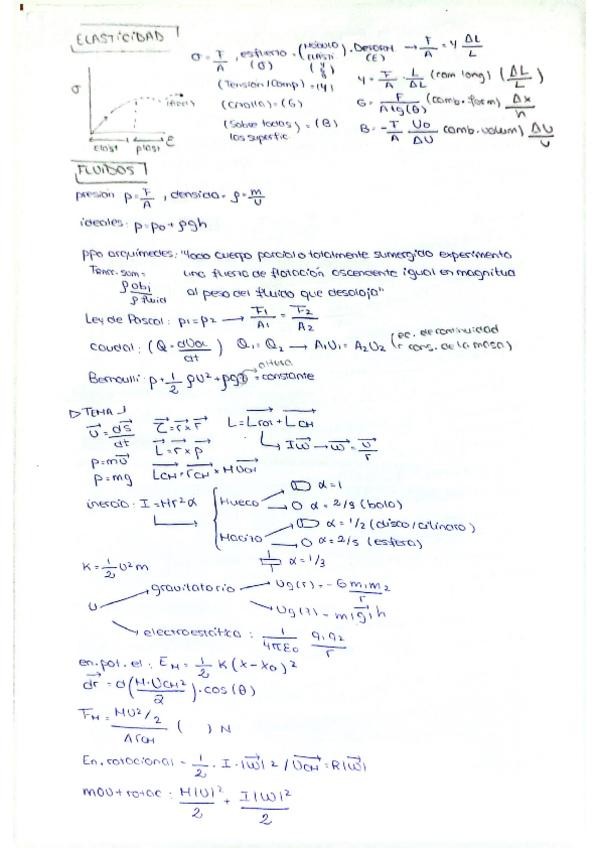 ELASTICIDAD
σ = F/A, esfuerzo = (MÓDULO ELASTI) · DEFORM (ε) → F/A = Y ΔL/L
σ (σ) (Y G B)
(Tensión/Comp) = (Y) Y = F/A · L/ΔL (cam long) (ΔL/L)
(Cizalla) = (G) G = F/A tg(θ) (camb. form) Δx/h
(Sobre todas las superfic = (B) B = -F/A · V0/ΔV camb. volum) ΔV/V
elast plast ε
FLUIDOS
presión p = F/A, densidad = ρ = m/v
ideales: p = p0 + ρgh
ppo arquímedes: "todo cuerpo parcial o totalmente sumergido experimenta
una fuerza de flotación ascendente igual en magnitud
ρobj/ρfluid al peso del fluido que desaloja"
Ley de Pascal: p1 = p2 → F1/A1 = F2/A2
caudal: (Q = dVol/dt) Q1 = Q2 → A1V1 = A2V2 (ec. de continuidad
cons. de la masa)
altura
Bernoulli: p + 1/2 ρv² + ρg = constante
▷ TEMA 1
v = ds/dt τ = r x F L = Lrot + LCM
L = r x p ↳ Iω → ω = v/r
p = mv
p = mg LCM = rCM x MVCM
inercia: I = Mr²α
Hueco α = 1
α = 2/3 (bola)
Macizo α = 1/2 (disco/cilindro)
α = 2/5 (esfera)
α = 1/3
K = 1/2 v²m
U gravitatoria Ug(r) = -G m1m2/r
Ug(r) = m|g|h
electrostática: 1/4πε0 q1q2/r
en. pot. el: EM = 1/2 K(x-x0)²
dr = d(M·VCM²/2)·cos(θ)
FM = MV²/2 / ΔrCM ( ) N
En. rotacional = 1/2 · I · |ω|2 / VCM = R|ω|
mov + rotac: M|V|²/2 + I|ω|²/2